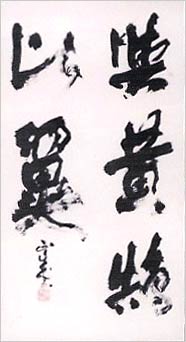 與黄鵠
比翼